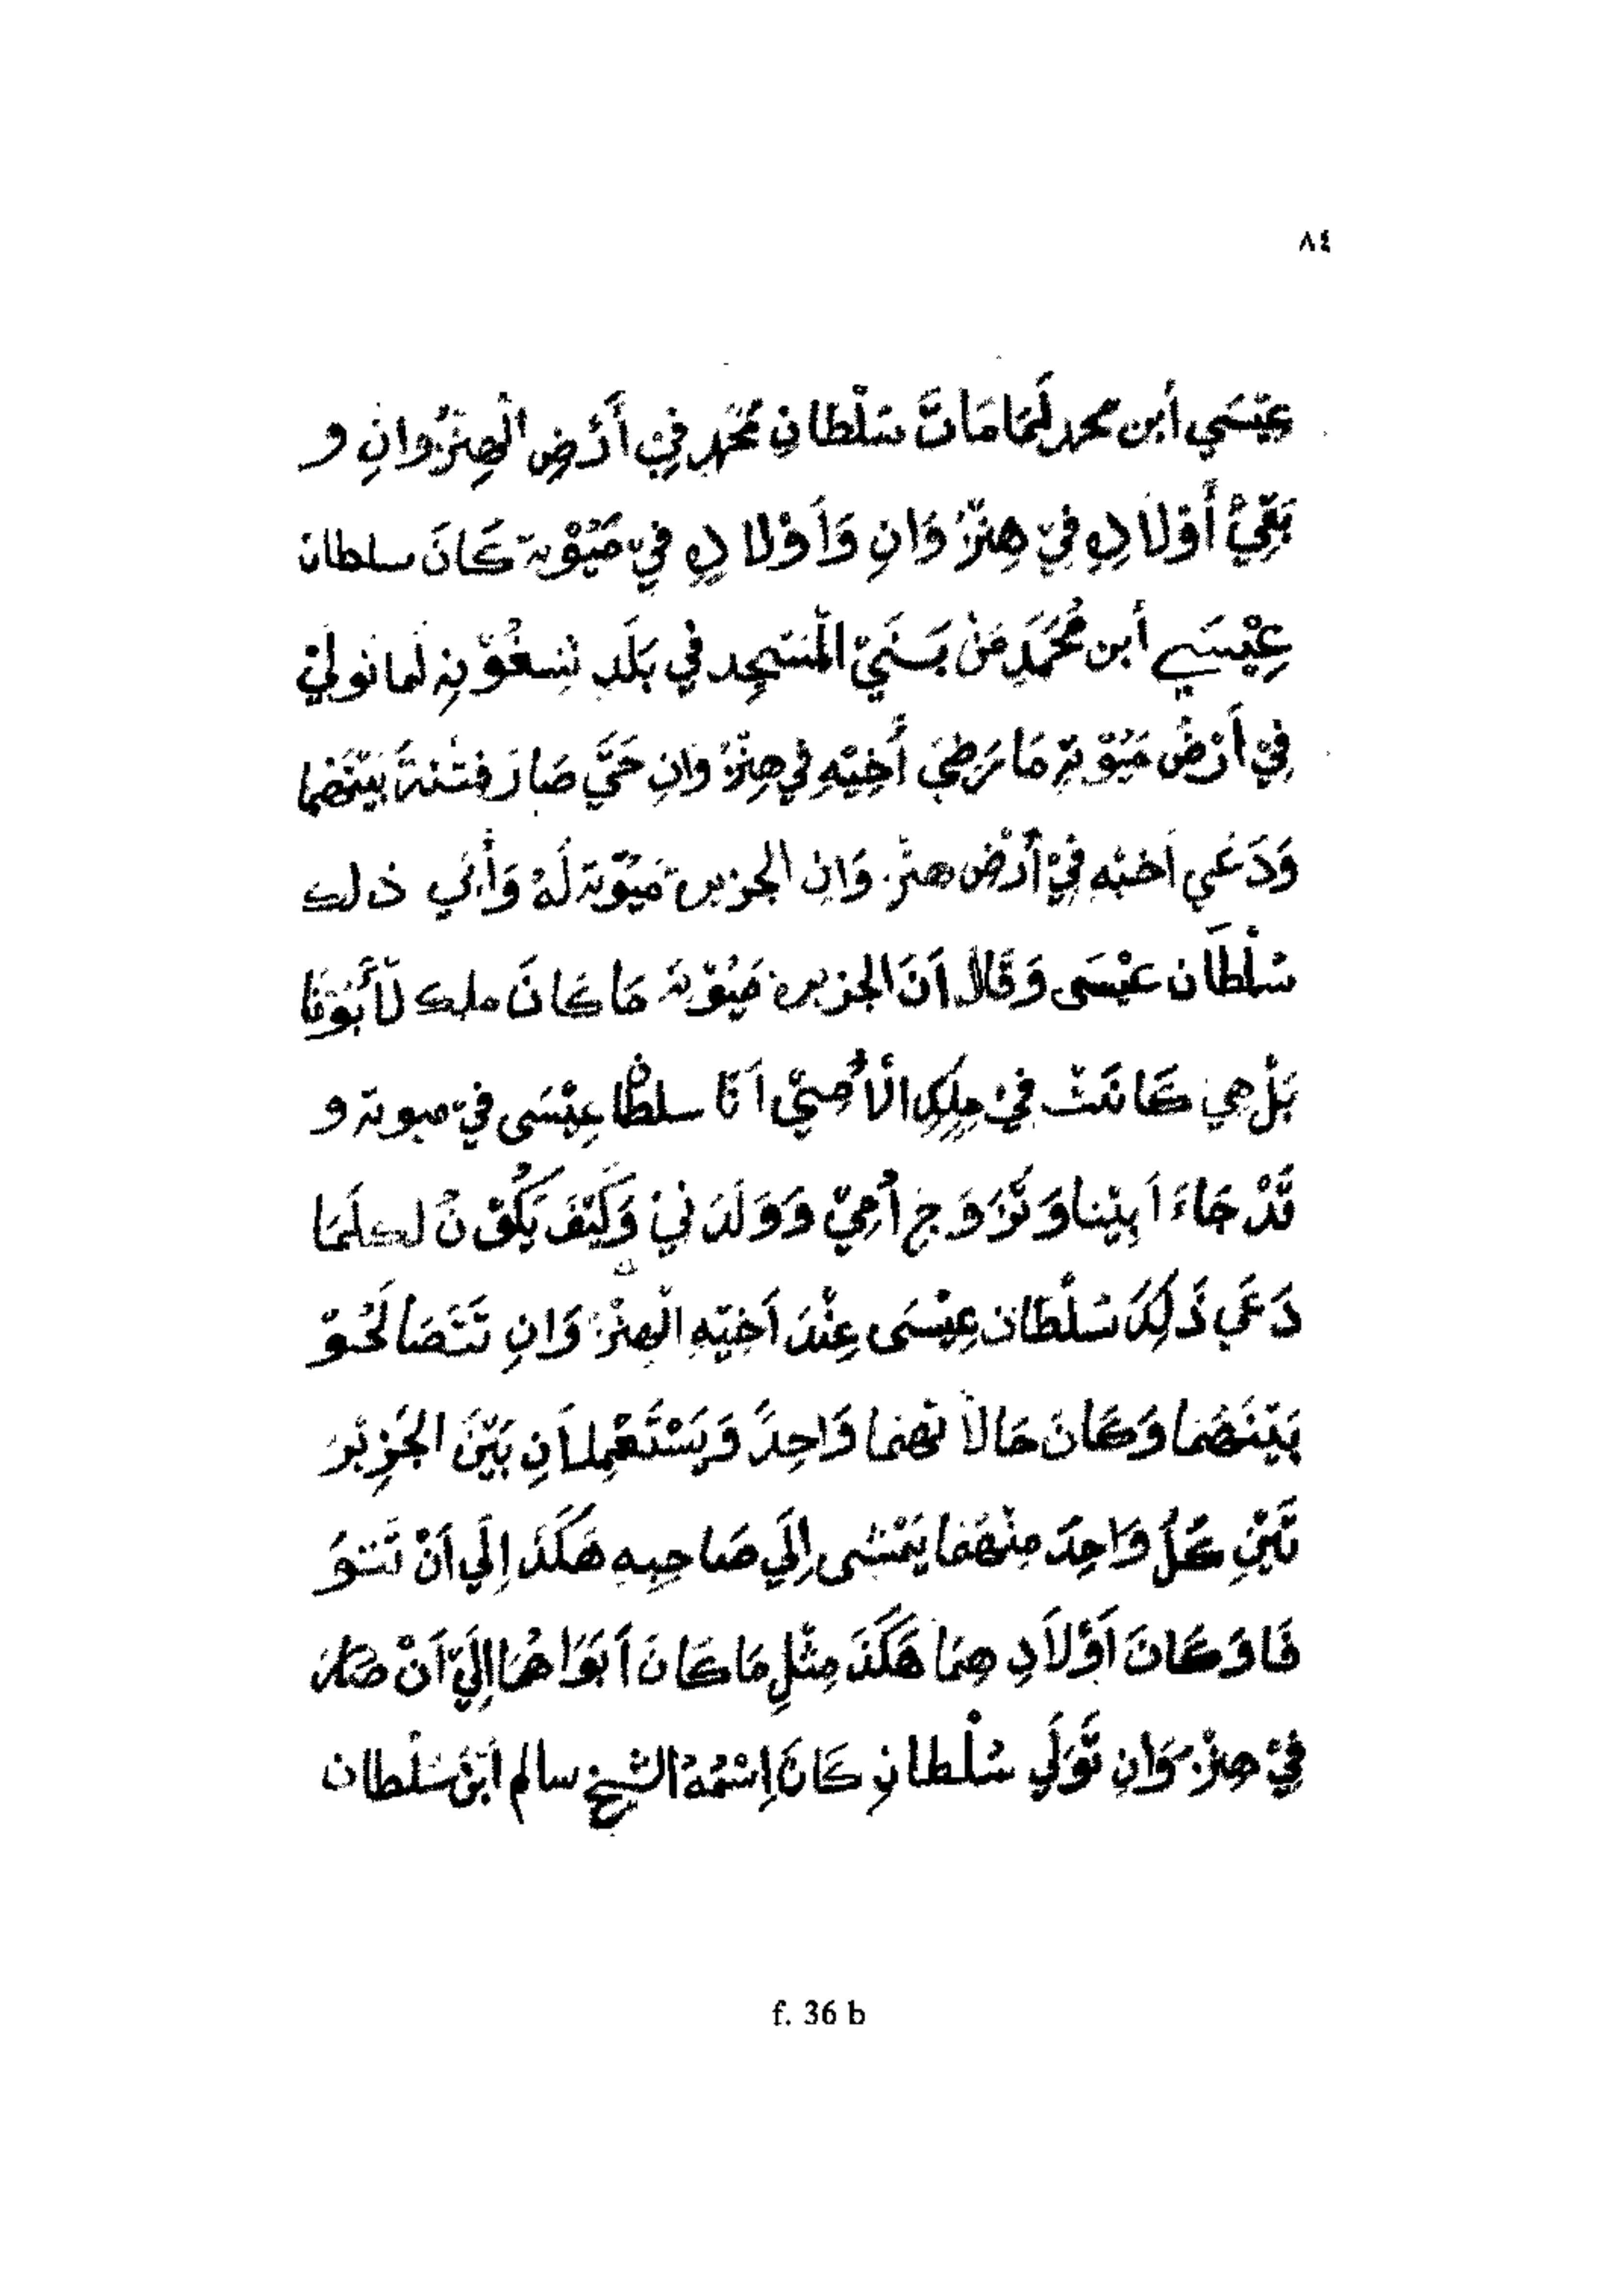 ٨٤
عِيْسَي أبن محمد لَمَا مَاتَ سَلْطانِ مُحَمَدِ فِيْ أَرْضِ الْهِنْزُوانِ و
بَقِيْ أَوْلَادِ فِيْ هِنْزُوَانِ وَأَوْلَادِ فِيْ مَيُوْتَة كَانَ سلطان
عِيْسَي أبن مُحَمَدِ مَنْ بَنَيْ الْمَسْجِد في بَلَدِ نِسِغُوْنِ لَمَا تولي
فِيْ اَرْضُ مَيُوْتَةِ مَا رَطِيَ أَخِيْهِ فِي هِنْزُوَانِ حَتَّي صَارَ فتْنَةَ بَيْنَهُمَا
وَدَعَي اَخيْهِ فِيْ أَرْضِ هنزُ وَانِ الجزيرة مَيُوْتَة لَهُ وَأَبَي ذلك
سُلْطَان عيْسَى وَقَالَ اَنَ الجزيرة مَيُوْتَة مَا كَانَ ملك لَأَبُوْنَا
بَلْ هِيَ كَانَتْ فِيْ مِلِكِ الْأُمِيْ اَنَا سلطَانْ عِيْسَى فِيْ ميوتة و
قَدْ جَاءَ اَبِيْنا وَتَزَوَجَ اُمِيْ وَوَلَدَنِيْ وَكَيْفَ يَكُوْنُ لك لَمَا
دَعَي ذَلِكَ سُلْطَان عِيْسَى عِنْدَ اَخِيْهِ الْهِنْزُوَانِ تَتَصَالَحُوْ
بَيْنَهُمَا وَكَانَ حَالَاتهمَا وَاحِدً وَيَسْتَعْمِلَانِ بَيْنَ الجَزِيْرَ
تَيْنِ كُلُ وَاحِدَ مِنْهُمَا يَمْشى اِلَي صَاحِبِهِ هَكَذَ اِلَي اَنْ تَتَوَ
فَا وَكَانَ اَوْلَادِ هِمَا هَكَذَ مِثْلِ مَا كَانَ اَبَوَاهُمَا اِلَيْ اَنْ صَارَ
فِيْ هِنْزُوَانِ تَوَلَي سُلْطانِ كَانَ اِسْمُهُ الشيخ سالم ابْنُ سَلْطان
f. 36 b